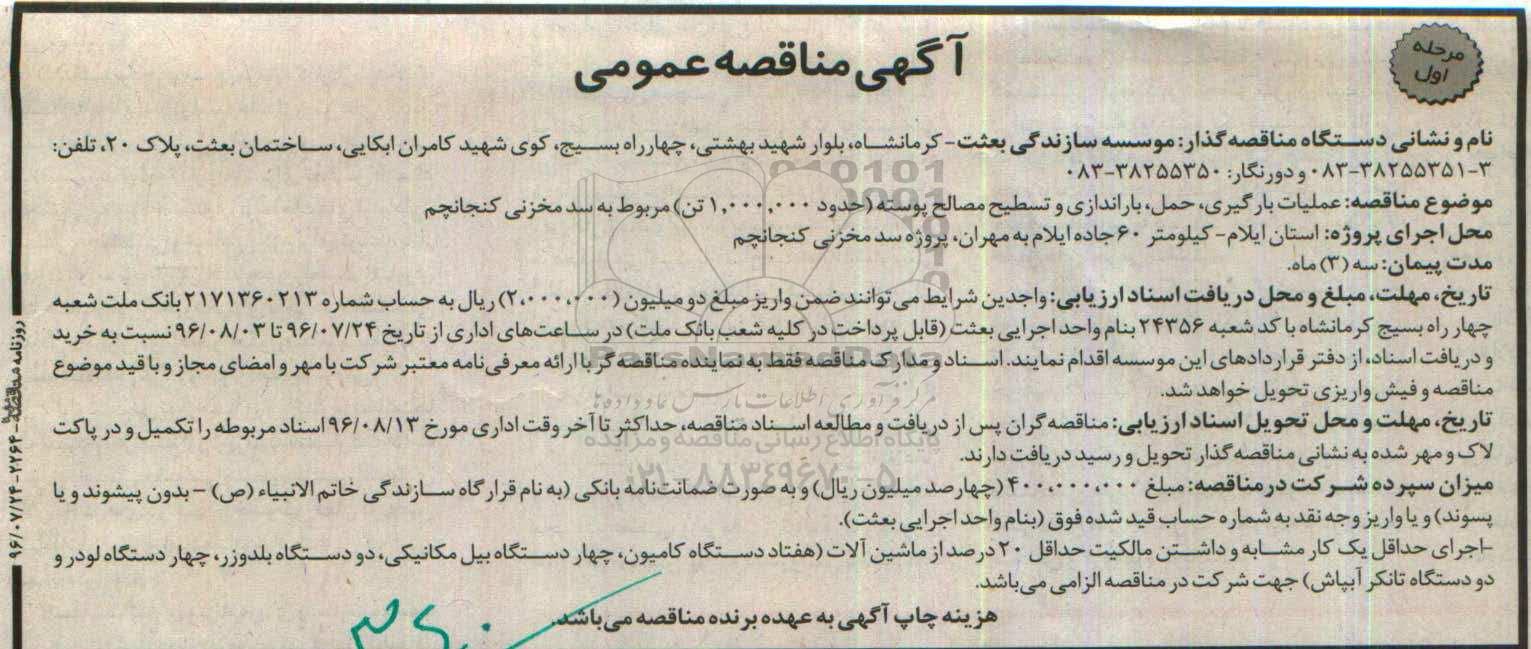 مرحله
اول
آگهی مناقصه عمومی
نام و نشانی دستگاه مناقصه‌گذار: موسسه سازندگی بعثت- کرمانشاه، بلوار شهید بهشتی، چهارراه بسیج، کوی شهید کامران ابکایی، ساختمان بعثت، پلاک ۲۰، تلفن:
۰۸۳-۳۸۲۵۵۳۵۱-۳ و دورنگار: ۰۸۳-۳۸۲۵۵۳۵۰
موضوع مناقصه: عملیات بارگیری، حمل، باراندازی و تسطیح مصالح پوسته (حدود ۱,۰۰۰,۰۰۰ تن) مربوط به سد مخزنی کنجانچم
محل اجرای پروژه: استان ایلام- کیلومتر ۶۰ جاده ایلام به مهران، پروژه سد مخزنی کنجانچم
مدت پیمان: سه (۳) ماه.
تاریخ، مهلت، مبلغ و محل دریافت اسناد ارزیابی: واجدین شرایط می‌توانند ضمن واریز مبلغ دو میلیون (۲،۰۰۰،۰۰۰) ریال به حساب شماره ۲۱۷۱۳۶۰۲۱۳ بانک ملت شعبه
چهار راه بسیج کرمانشاه با کد شعبه ۲۴۳۵۶ بنام واحد اجرایی بعثت (قابل پرداخت در کلیه شعب بانک ملت) در ساعت‌های اداری از تاریخ ۹۶/۰۷/۲۴ تا ۹۶/۰۸/۰۳ نسبت به خرید
و دریافت اسناد، از دفتر قراردادهای این موسسه اقدام نمایند. اسناد و مدارک مناقصه فقط به نماینده مناقصه‌گر با ارائه معرفی‌نامه معتبر شرکت با مهر و امضای مجاز و با قید موضوع
مناقصه و فیش واریزی تحویل خواهد شد.
تاریخ، مهلت و محل تحویل اسناد ارزیابی: مناقصه‌گران پس از دریافت و مطالعه اسناد مناقصه، حداکثر تا آخر وقت اداری مورخ ۹۶/۰۸/۱۳ اسناد مربوطه را تکمیل و در پاکت
لاک و مهر شده به نشانی مناقصه‌گذار تحویل و رسید دریافت دارند.
میزان سپرده شرکت در مناقصه: مبلغ ۴۰۰،۰۰۰،۰۰۰ (چهارصد میلیون ریال) و به صورت ضمانت‌نامه بانکی (به نام قرارگاه سازندگی خاتم الانبیاء (ص) – بدون پیشوند و یا
پسوند) و یا واریز وجه نقد به شماره حساب قید شده فوق (بنام واحد اجرایی بعثت).
-اجرای حداقل یک کار مشابه و داشتن مالکیت حداقل ۲۰ درصد از ماشین آلات (هفتاد دستگاه کامیون، چهار دستگاه بیل مکانیکی، دو دستگاه بلدوزر، چهار دستگاه لودر و
دو دستگاه تانکر آبپاش) جهت شرکت در مناقصه الزامی می‌باشد.
هزینه چاپ آگهی به عهده برنده مناقصه می‌باشد.
ParsNamadData
مرکز فرآوری اطلاعات پارس نماد داده‌ها
پایگاه اطلاع رسانی مناقصه و مزایده
۰۲۱-۸۸۳۴۹۶۷۰-۵